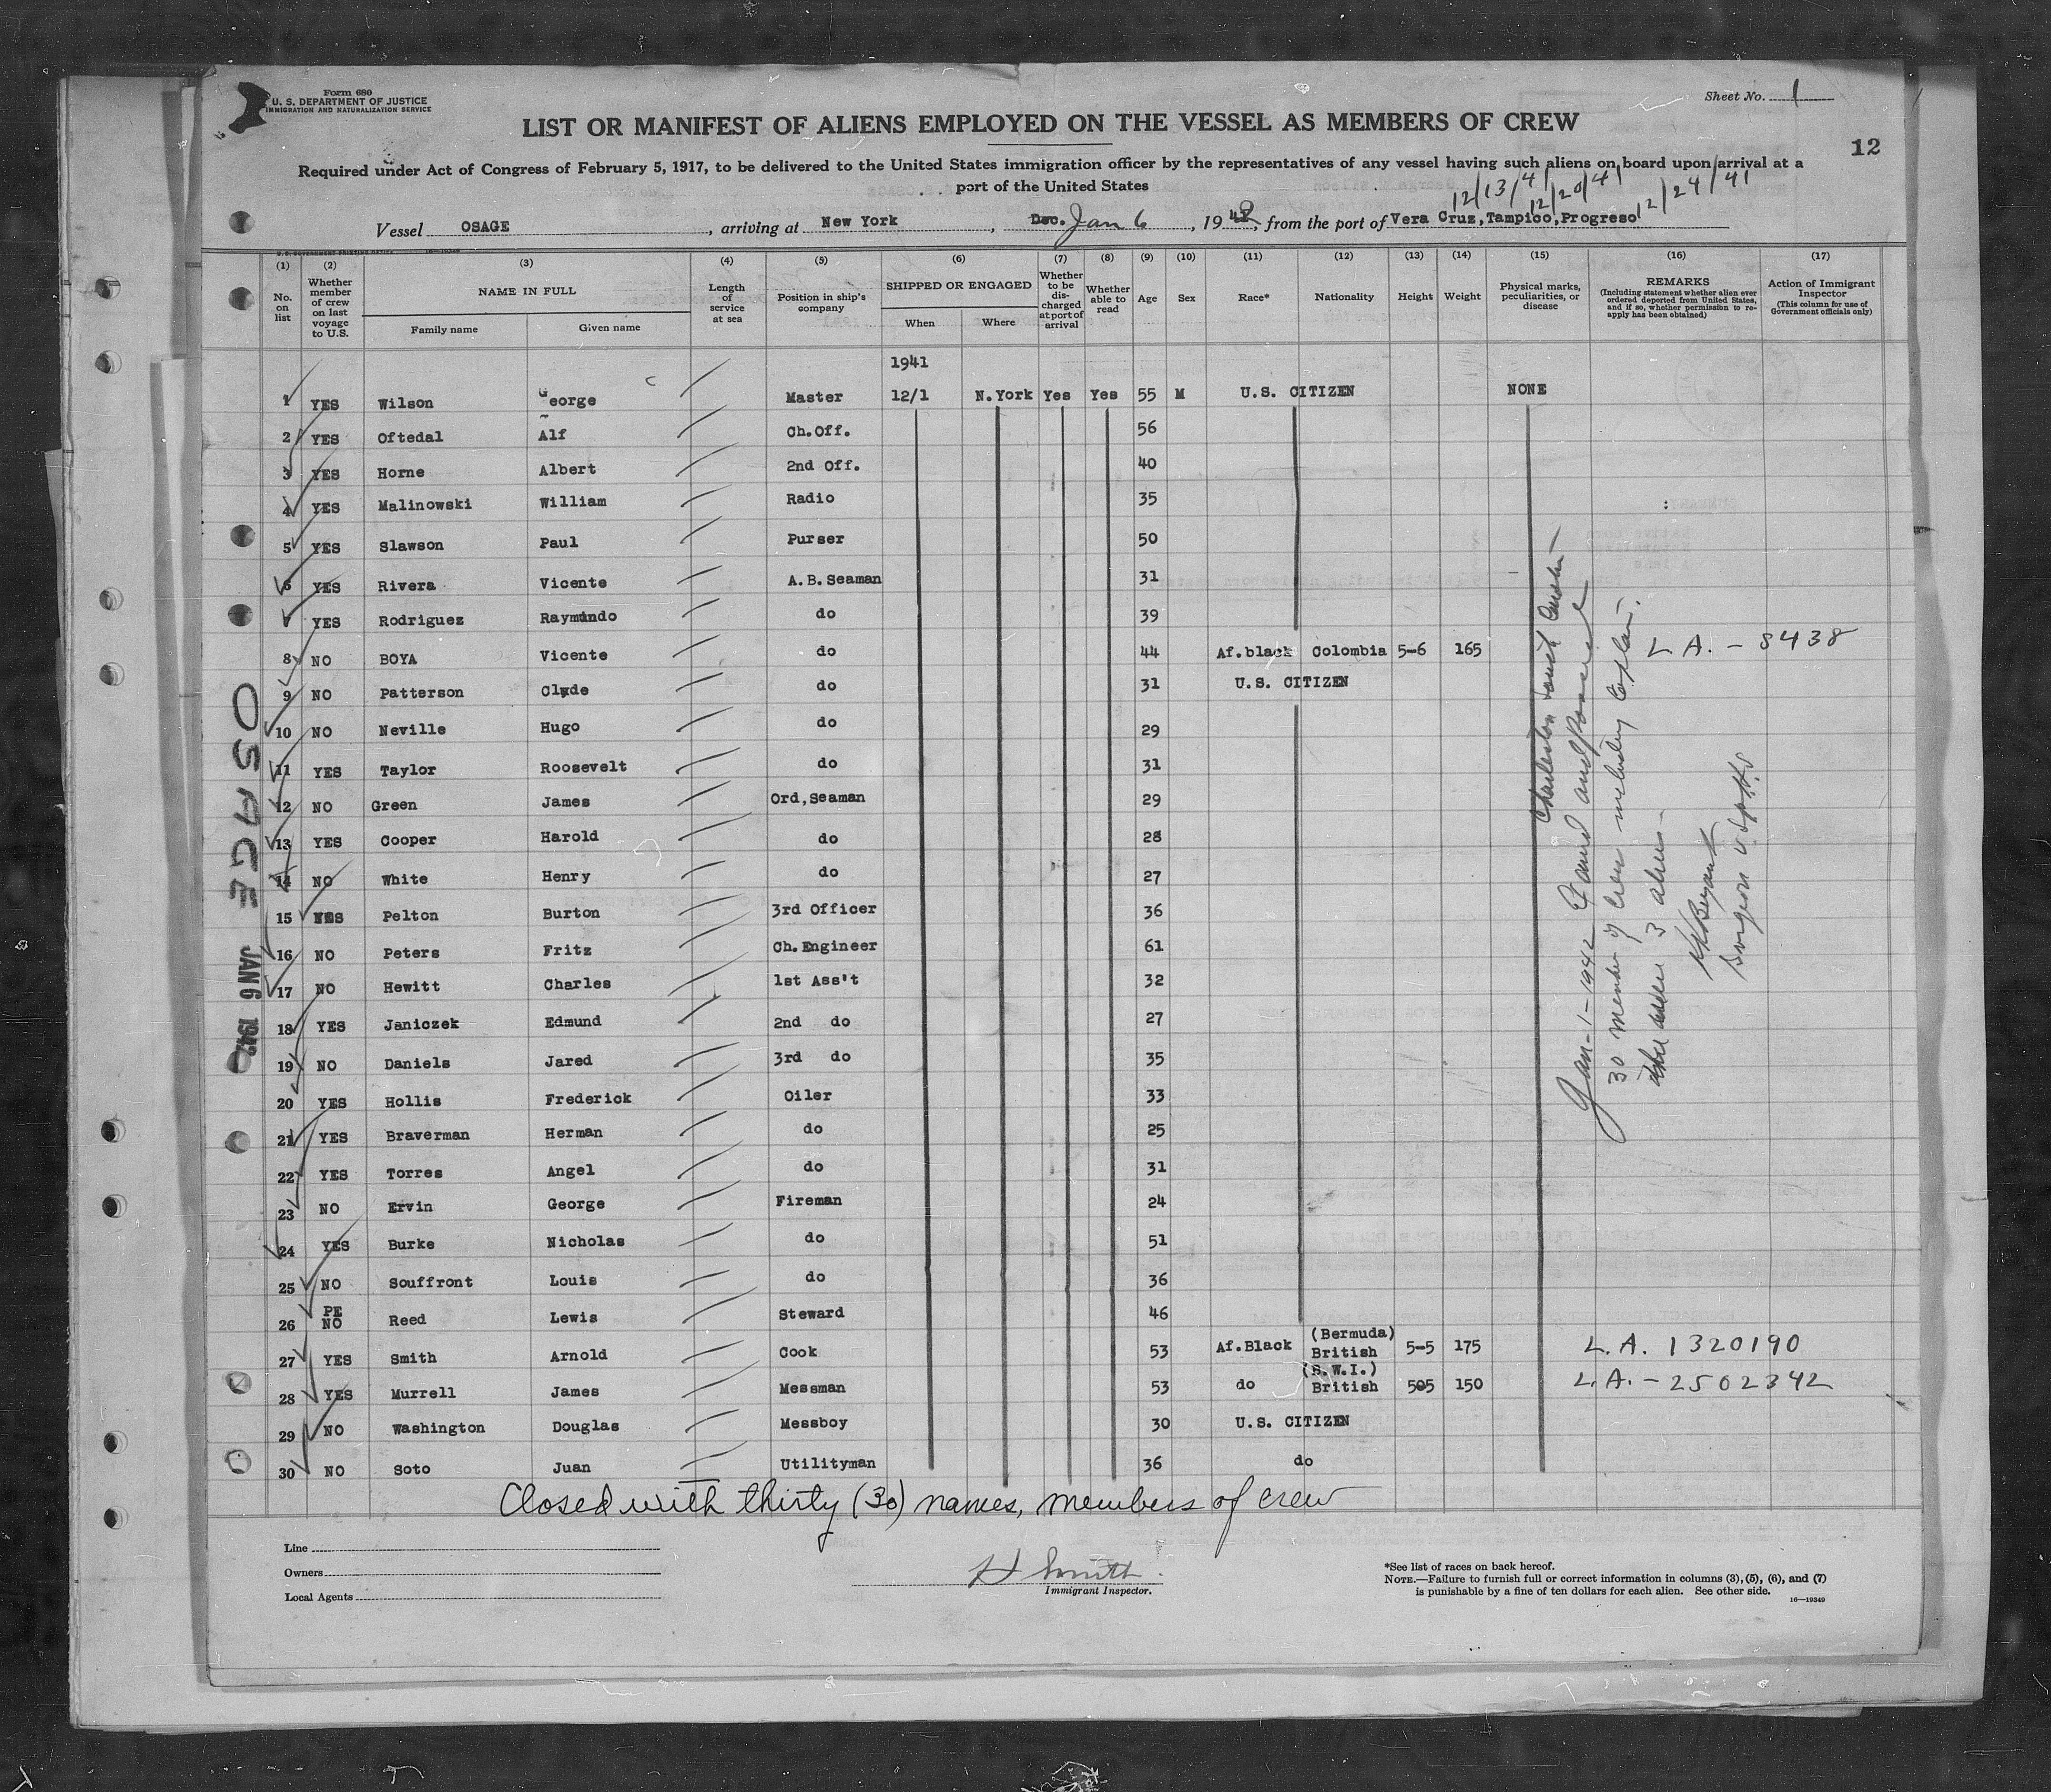 Form 680
U. S. DEPARTMENT OF JUSTICE
IMMIGRATION AND NATURALIZATION SERVICE
Sheet No. 1
LIST OR MANIFEST OF ALIENS EMPLOYED ON THE VESSEL AS MEMBERS OF CREW
12
Required under Act of Congress of February 5, 1917, to be delivered to the United States immigration officer by the representatives of any vessel having such aliens on board upon arrival at a
port of the United States
12/13/41 12/20/41 12/24/41
Vessel OSAGE, arriving at New York, Dec. Jan 6, 1942, from the port of Vera Cruz,Tampico,Progreso
(1) (2) (3) (4) (5) (6) (7) (8) (9) (10) (11) (12) (13) (14) (15) (16) (17)
No. on list
Whether member of crew on last voyage to U.S.
NAME IN FULL
Family name
Given name
Length of service at sea
Position in ship's company
SHIPPED OR ENGAGED
When
Where
Whether to be discharged at port of arrival
Whether able to read
Age
Sex
Race*
Nationality
Height
Weight
Physical marks, peculiarities, or disease
REMARKS
(Including statement whether alien ever ordered deported from United States, and if so, whether permission to reapply has been obtained)
Action of Immigrant Inspector
(This column for use of Government officials only)
1941
1 YES Wilson George Master 12/1 N.York Yes Yes 55 M U.S. CITIZEN NONE
2 YES Oftedal Alf Ch.Off. 56
3 YES Horne Albert 2nd Off. 40
4 YES Malinowski William Radio 35
5 YES Slawson Paul Purser 50
6 YES Rivera Vicente A.B.Seaman 31
YES Rodriguez Raymundo do 39
8 NO BOYA Vicente do 44 Af.black Colombia 5-6 165 L.A. - 8438
9 NO Patterson Clyde do 31 U.S. CITIZEN
10 NO Neville Hugo do 29
11 YES Taylor Roosevelt do 31
12 NO Green James Ord,Seaman 29
13 YES Cooper Harold do 28
14 NO White Henry do 27
15 YES Pelton Burton 3rd Officer 36
16 NO Peters Fritz Ch.Engineer 61
17 NO Hewitt Charles 1st Ass't 32
18 YES Janiczek Edmund 2nd do 27
19 NO Daniels Jared 3rd do 35
20 YES Hollis Frederick Oiler 33
21 YES Braverman Herman do 25
22 YES Torres Angel do 31
23 NO Ervin George Fireman 24
24 YES Burke Nicholas do 51
25 NO Souffront Louis do 36
26 PE NO Reed Lewis Steward 46
27 YES Smith Arnold Cook 53 Af.Black (Bermuda) British 5-5 175 L.A. 1320190
28 YES Murrell James Messman 53 do (B.W.I.) British 505 150 L.A. - 2502342
29 NO Washington Douglas Messboy 30 U.S. CITIZEN
30 NO Soto Juan Utilityman 36 do
OSAGE
JAN 6 1942
Charleston South
Jan-1-1942 Found and passed
30 members of crew including Captain.
3 aliens
Surgeon
Closed with thirty (30) names, members of crew
Line
Owners
Local Agents
H Smith
Immigrant Inspector.
*See list of races on back hereof.
NOTE.—Failure to furnish full or correct information in columns (3), (5), (6), and (7)
is punishable by a fine of ten dollars for each alien. See other side.
16—19349